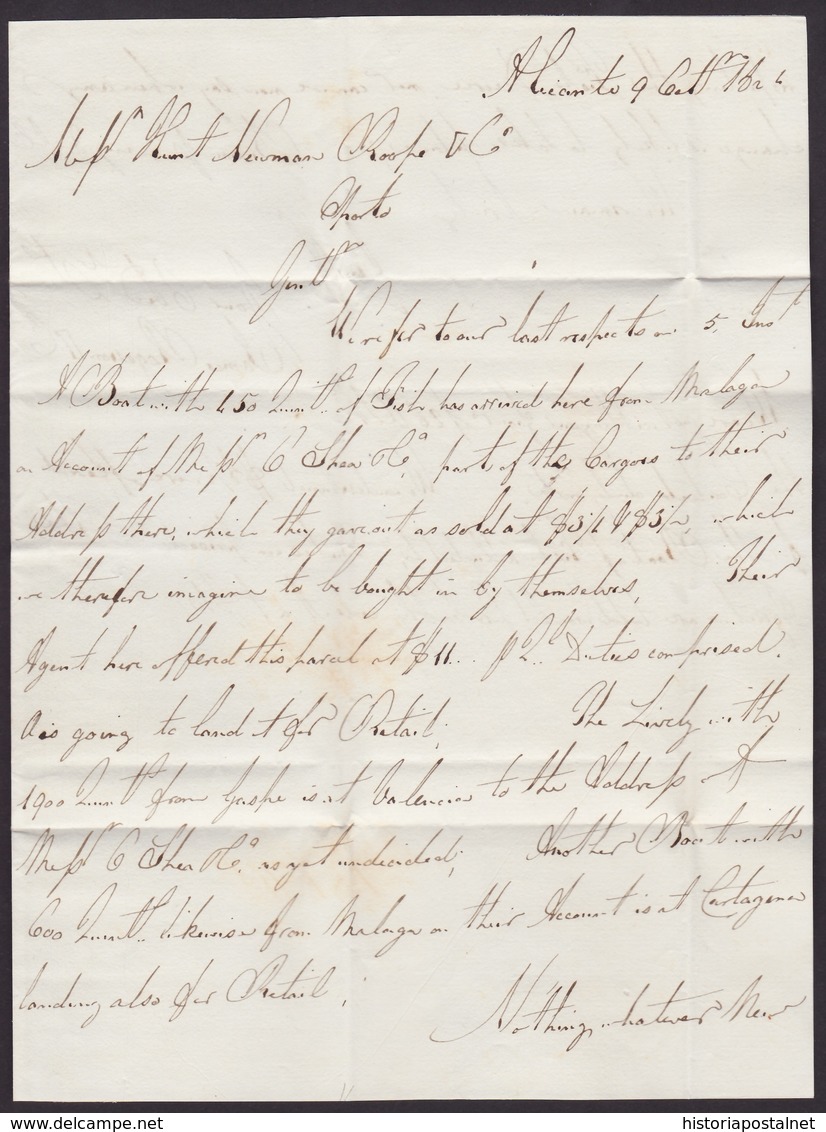 Alicante 9 Octbr 182
Messrs Hunt Newman Roope & Co
Oporto
Gentn
We refer to our last respects on 5 Inst
A Boat with 450 Quintls of Fish has arrived here from Malaga
on Account of Messrs O Shea & Co, part of the Cargoes to their
Address there, which they gave out as sold at $5¼ & $5½, which
we therefore imagine to be bought in by themselves, Their
Agent here offered this parcel at $11.. p Ql Duties comprised.
& is going to land it for Retail; The Lively with
1900 Quintls from Gaspe is at Valencia to the Address of
Messrs O Shea & Co. as yet undecided; Another Boat with
600 Quintls likewise from Malaga on their Account is at Cartagena
landing also for Retail;
Nothing whatever New
historiapostalnet